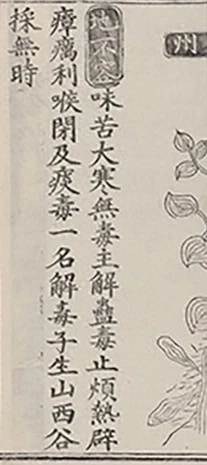 州
地不容味苦大寒無毒主解蠱毒止煩熱辟
瘴癘利喉閉及痰毒一名解毒子生山西谷
採無時